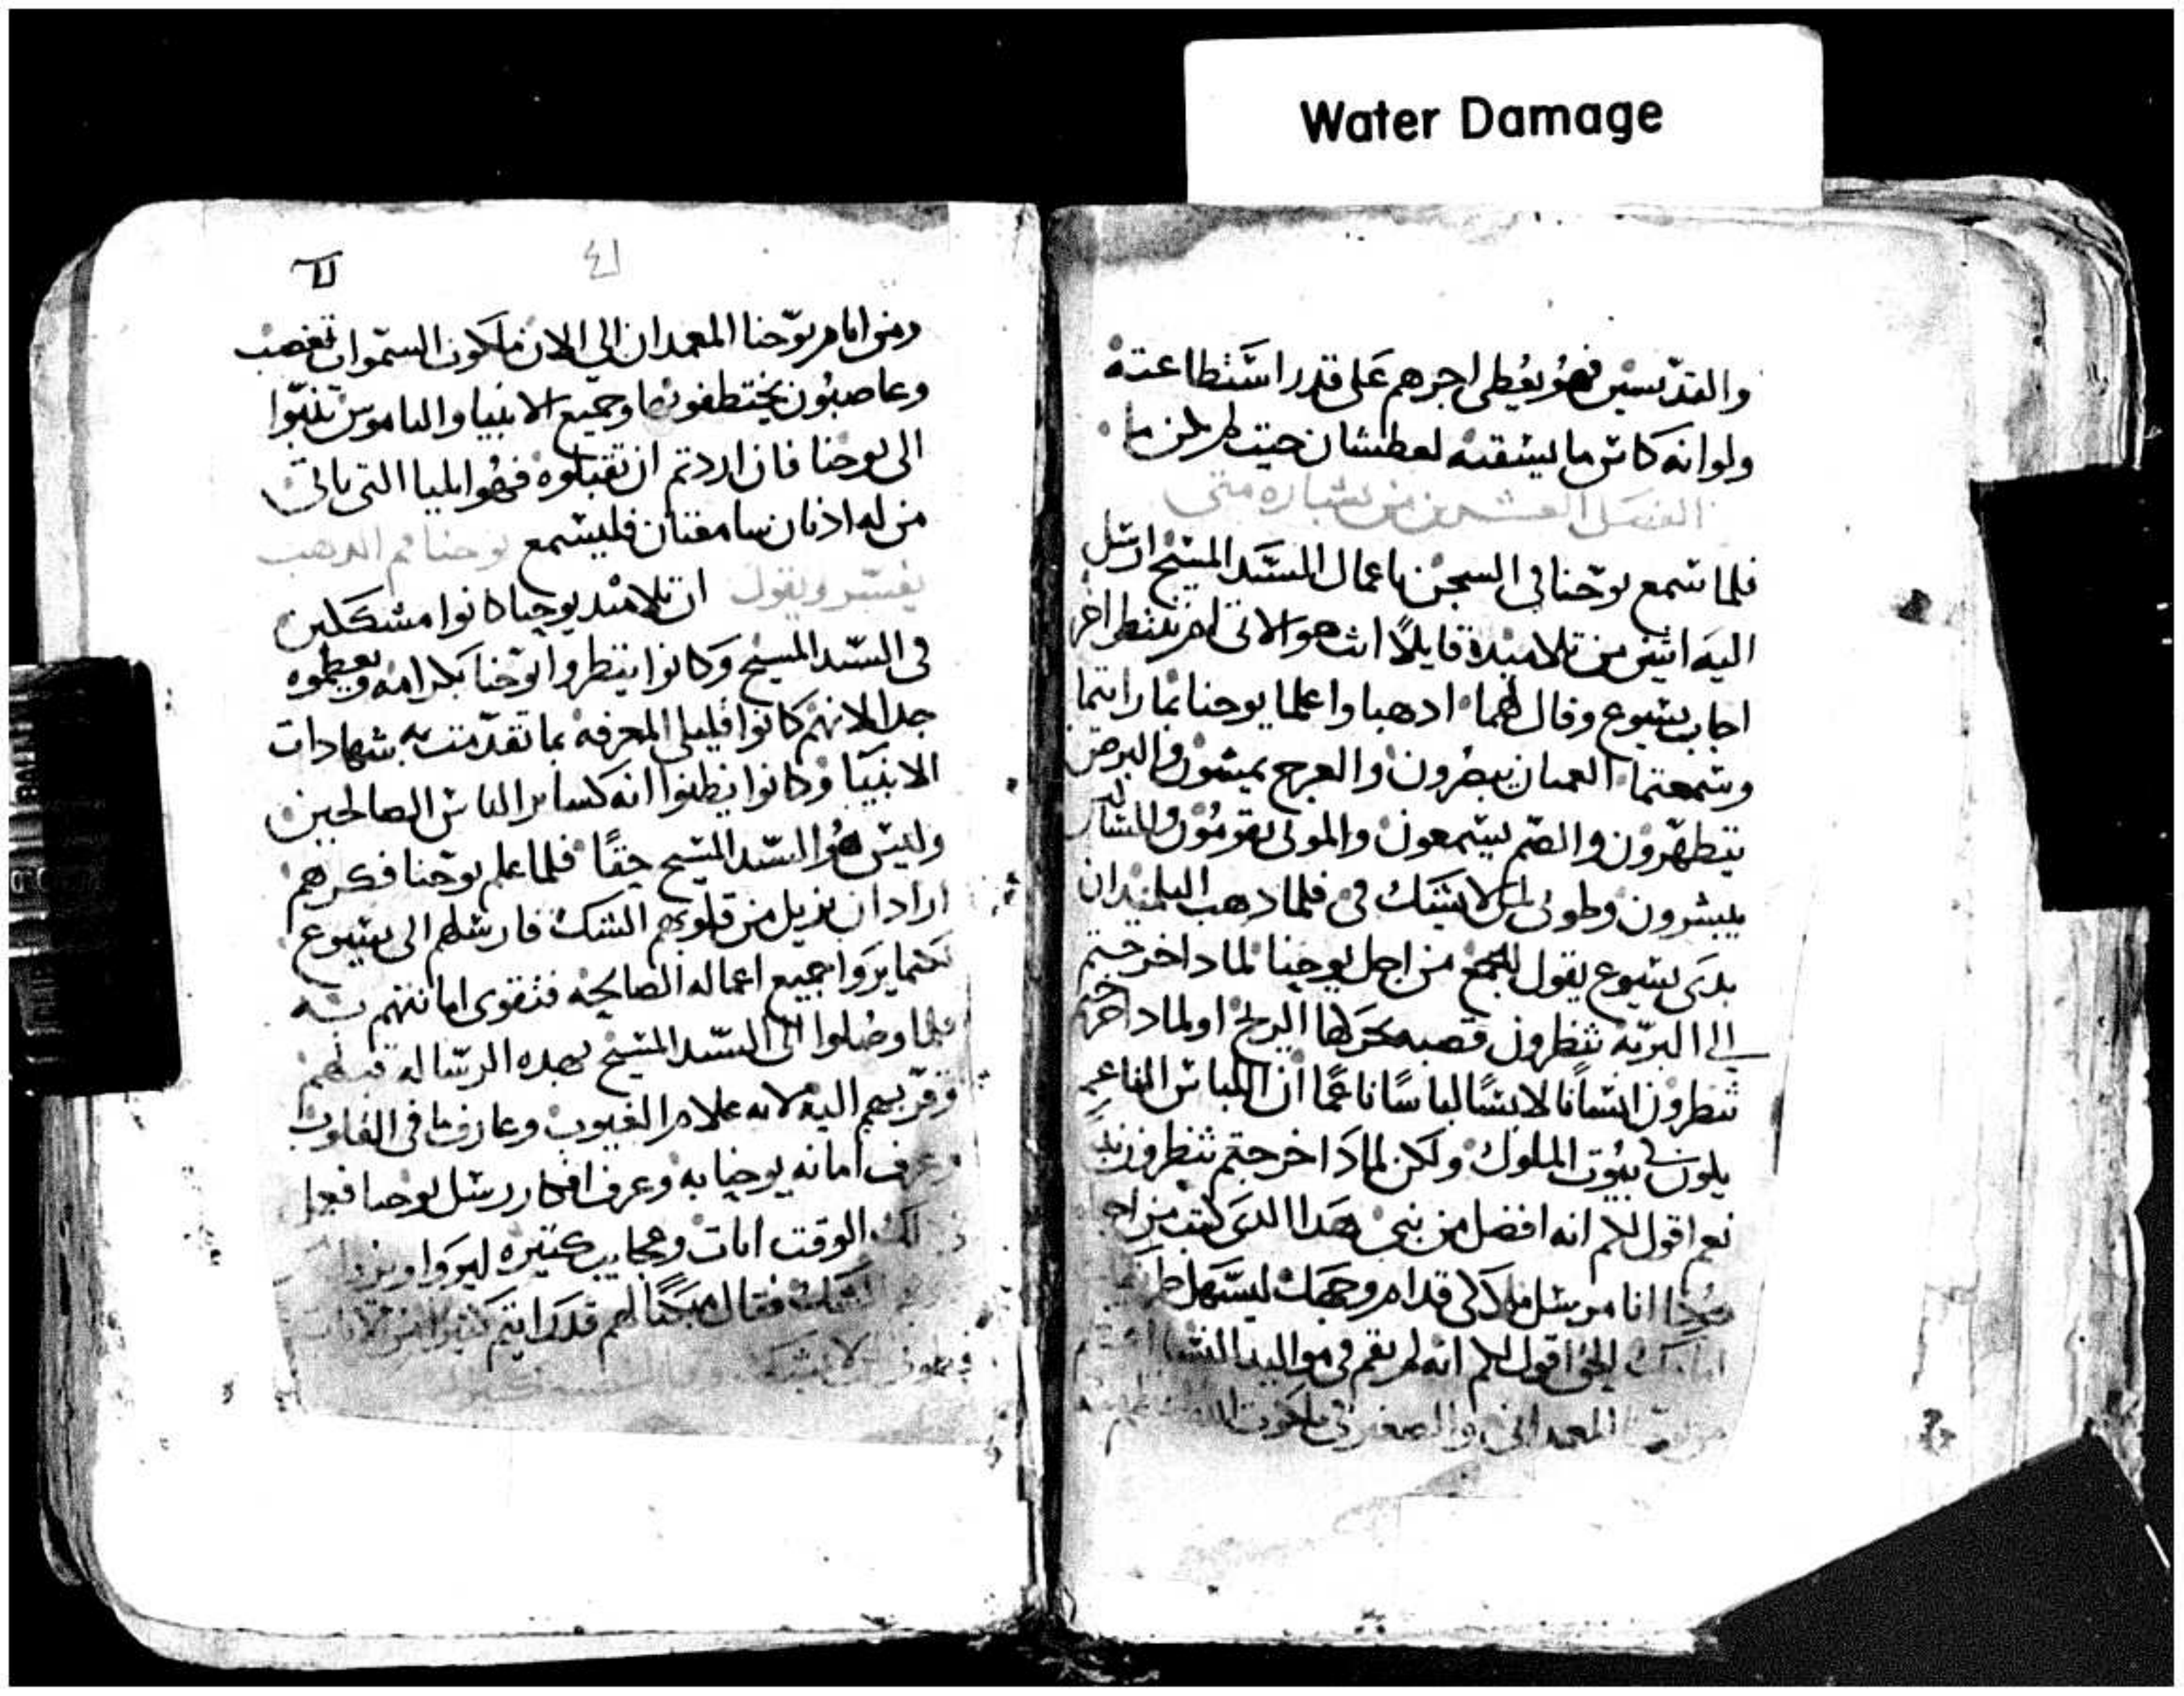 Water Damage
والقديسين فهو يعطى اجرهم على قدر استطاعته
ولوانه كاس ما يسقيه لعطشان
الفصل العشرين من بشاره متى
فلما سمع يوحنا فى السجن باعمال السيد المسيح ارسل
اليه اتنين من تلاميده قايلا انت هو الاتى ام ننتظر اخر
اجاب يسوع وقال لهما ادهبا واعلما يوحنا بما رايتما
وسمعتما العميان يبصرون والعرج يمشون والبرص
يتطهرون والصم يسمعون والموتى يقومون والمساكين
يبشرون وطوبى لمن لا يشك فى فلما دهب التلميدان
بدى يسوع يقول للجمع من اجل يوحنا لمادا خرجتم
الى البريه تنظرون قصبه تحركها الريح او لمادا خرجتم
تنظرون انسانا لابسا لباسا ناعما ان اللباس الناعم
يكون فى بيوت الملوك ولكن لمادا خرجتم تنظرون نبيا
نعم اقول لكم انه افضل من نبى هدا الدى كتب من اجله
هودا انا مرسل ملاكى قدام وجهك ليسهل
الحق اقول لكم انه لم يقم فى مواليد النسا
المعمدانى والصغير فى ملكوت
٤١
ومن ايام يوحنا المعمدان الى الان ملكوت السموات تغصب
وغاصبون يختطفونها وجميع الانبيا والناموس تنبوا
الى يوحنا فان اردتم ان تقبلوه فهو ايليا التى ياتى
من له ادنان سامعتان فليسمع يوحنا فم الدهب
يفسر ويقول ان تلاميد يوحنا كانوا مشككين
فى السيد المسيح وكانوا ينظروا يوحنا بكرامه ويعظموه
جدا لانهم كانوا قليلى المعرفه بما تقدمت به شهادات
الانبيا وكانوا يظنوا انه كساير الناس الصالحين
وليس هو السيد المسيح حقا فلما علم يوحنا فكرهم
اراد ان يزيل من قلوبهم الشك فارسلهم الى يسوع
كيما يروا جميع اعماله الصالحه فتقوى امانتهم به
فلما وصلوا الى السيد المسيح بهده الرساله قبلهم
وقربهم اليه لانه علام الغيوب وعارف ما فى القلوب
وعرف امانه يوحنا به وعرف افكار رسل يوحنا فعمل
الوقت ايات وعجايب كتيره ليروا
الشك فقال مبكتا لهم قد رايتم كتيرا من الايات